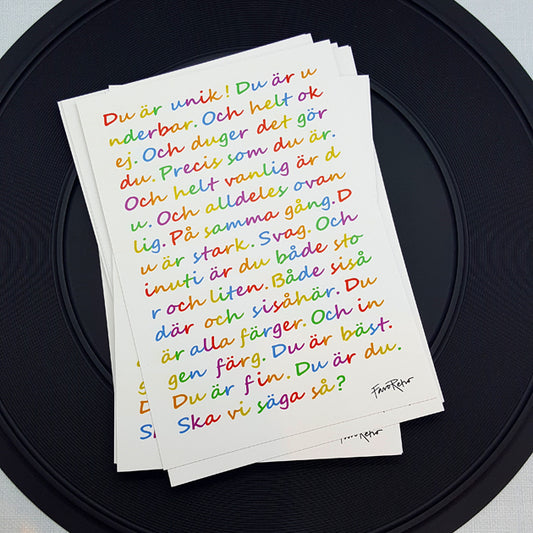 Du är unik! Du är u
nderbar. Och helt ok
ej. Och duger det gör
du. Precis som du är.
Och helt vanlig är d
u. Och alldeles ovan
lig. På samma gång. D
u är stark. Svag. Och
inuti är du både sto
r och liten. Både siså
där och sisåhär. Du
är alla färger. Och in
gen färg. Du är bäst.
Du är fin. Du är du.
Ska vi säga så?
FavoRetro